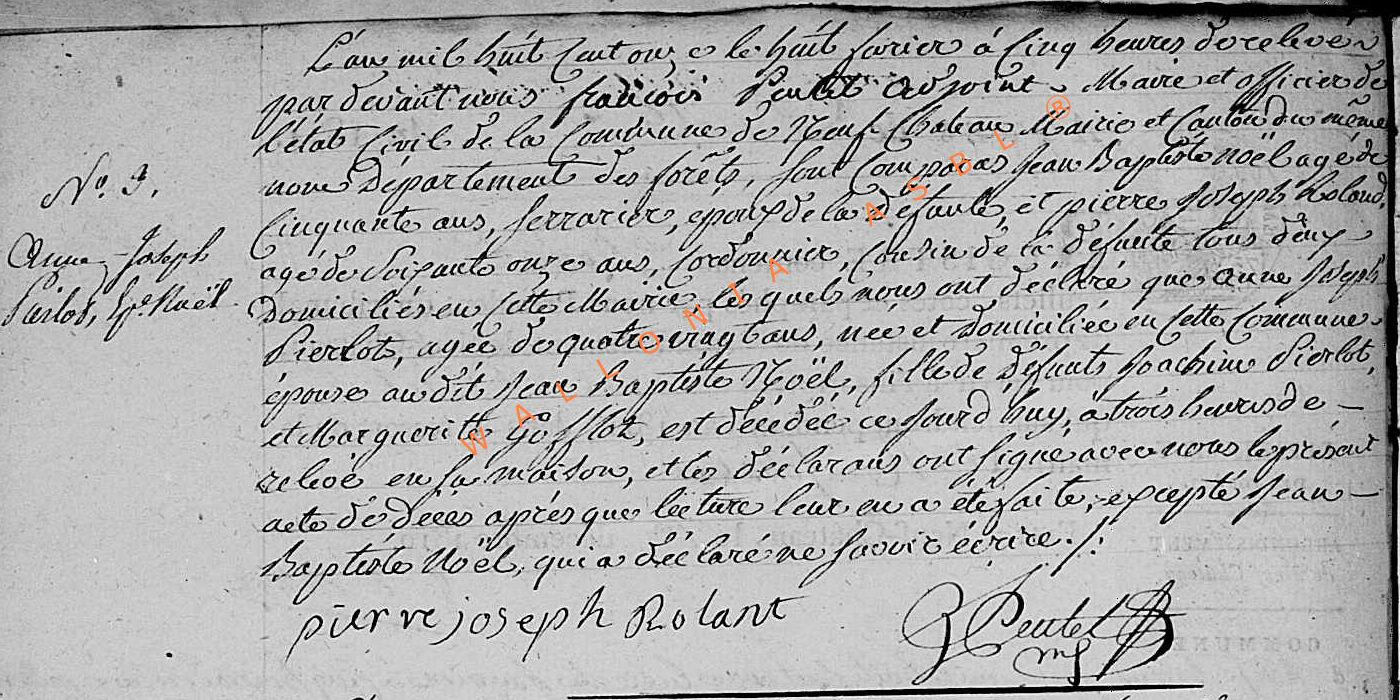 L'an mil huit cent onze le huit favrier à Cinq heures de relevée
par devant nous françois Pentel adjoint Maire et officier de
l'état Civil de la Commune de Neuf Chateau Mairie et Canton du même
nom Département des forêts, sont Comparus Jean Baptiste noël agé de
Cinquante ans, serrurier, epoux de la défunte, et pierre Joseph Roland,
agé de soixante onze ans, Cordonnier, Cousin de la défunte tous deux
Domiciliés en Cette Mairie, les quels nous ont déclaré que anne Joseph
Pierlot, agée de quatre vingt ans, née et domiciliée en Cette Commune
épouse au dit Jean Baptiste Noël, fille de défunts Joachim Pierlot,
et Marguerite Gofflot, est décédée ce Jourd'huy, à trois heures de
relevé en sa maison, et les déclarans ont signé avec nous le présent
acte de décès après que lecture leur en a été faite, excepté Jean
Baptiste Noël, qui a déclaré ne savoir écrire ./.
N.º 3.
Anne Joseph
Pierlot, Noël
pierre joseph Rolant
Pentel
WALLONIA ASBL ®